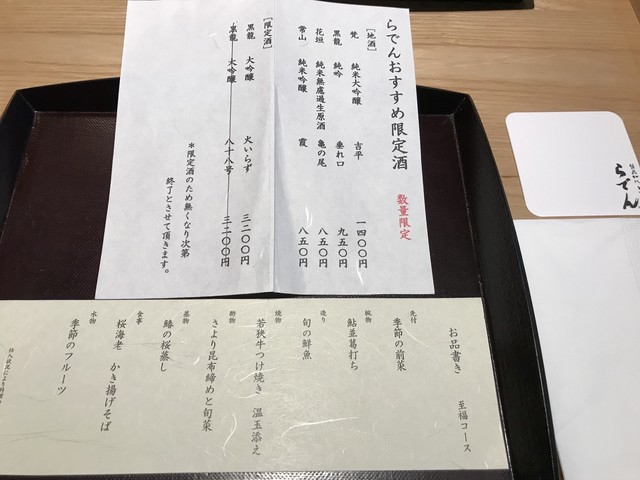 らでんおすすめ限定酒
数量限定
[地酒]
梵 純米大吟醸 吉平 一四〇〇円
黒龍 純吟 垂れ口 九五〇円
花垣 純米無濾過生原酒 亀の尾 八五〇円
常山 純米吟醸 霞 八五〇円
[限定酒]
黒龍 大吟醸 火いらず 三二〇〇円
黒龍 大吟醸 八十八号 三二〇〇円
*限定酒のため無くなり次第
終了とさせて頂きます。
らでん
お品書き 至福コース
先付
季節の前菜
椀物
鮎並葛打ち
造り
旬の鮮魚
焼物
若狭牛つけ焼き 温玉添え
酢物
さより昆布締めと旬菜
蒸物
鰆の桜蒸し
食事
桜海老 かき揚げそば
水物
季節のフルーツ